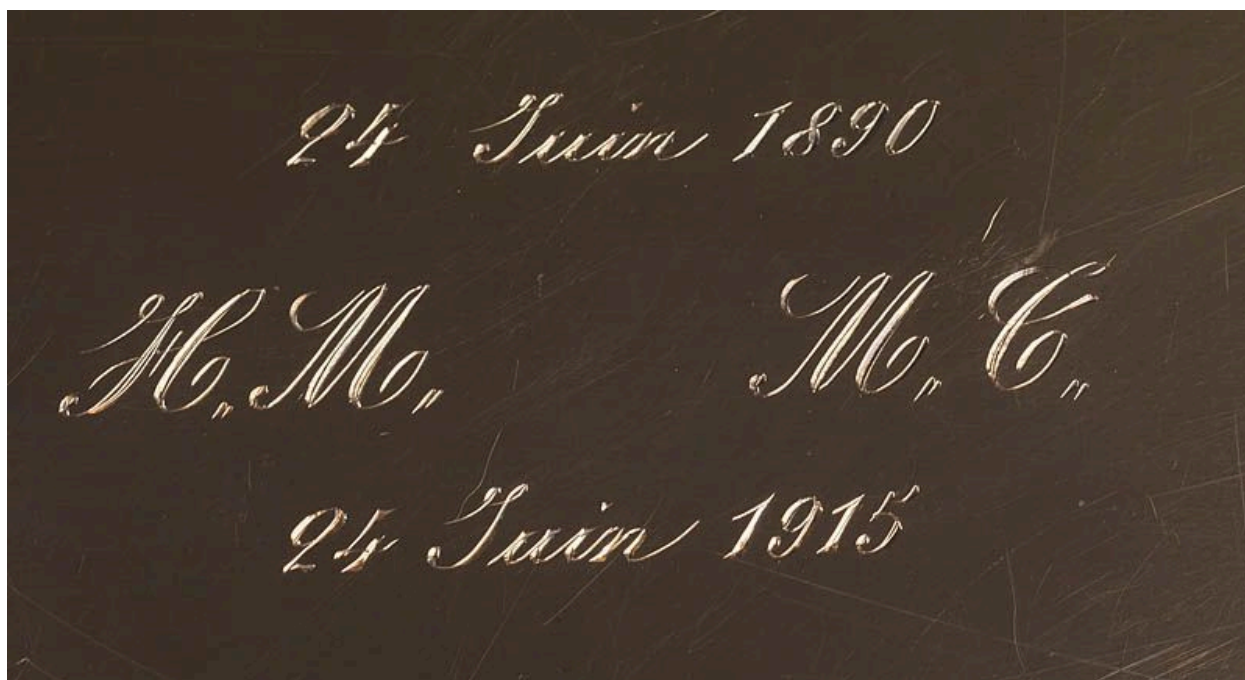 24 Juin 1890
H. M. M. C.
24 Juin 1915